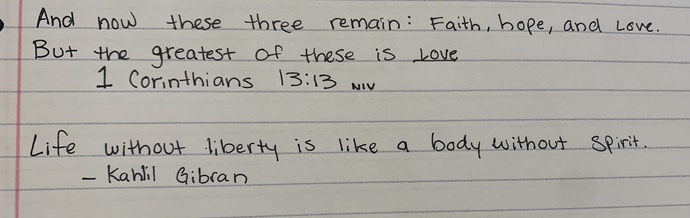 And now these three remain: Faith, hope, and Love.
But the greatest of these is Love
1 Corinthians 13:13 NIV
Life without liberty is like a body without spirit.
- Kahlil Gibran